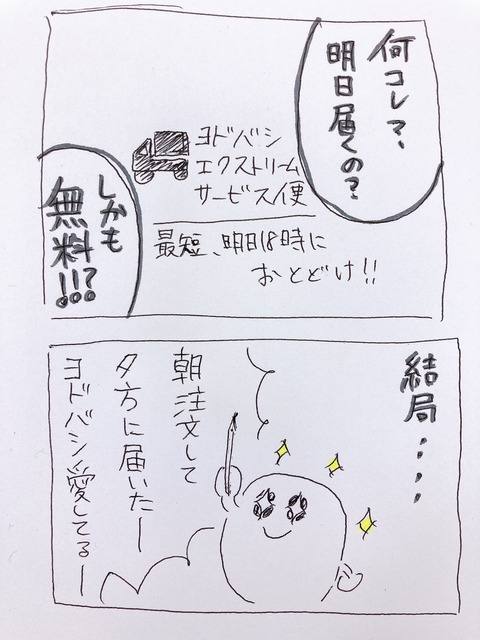 何コレ？、
明日届くの？
ヨドバシ
エクストリーム
サービス便
最短、明日18時に
おとどけ!!
しかも
無料!!?
結局....
朝注文して
夕方に届いたー
ヨドバシ愛してるー